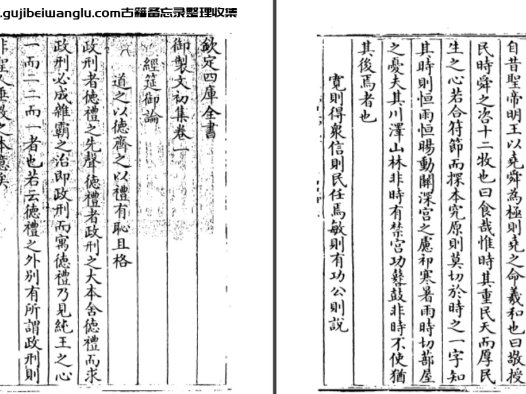 .gujibeiwanglu.com古籍备忘录整理收集
自昔聖帝明王以堯舜為極則堯之命羲和也曰敬授
民時舜之咨十二牧也曰食哉惟時其重民天而厚民
生之心若合符節而探本究原則莫切於時之一字知
其時則恒雨恒暘動關深宮之慮祁寒暑雨時切蔀屋
之憂夫其川澤山林非時有禁宫功鼛鼓非時不使猶
其後焉者也
寛則得衆信則民任焉敏則有功公則說
欽定四庫全書
御製文初集卷一
經筵御論
道之以德齊之以禮有恥且格
政刑者德禮之先聲德禮者政刑之大本舍德禮而求
政刑必成雜霸之治即政刑而寓德禮乃見純王之心
一而二二而一者也若云德禮之外别有所謂政刑則
非聖人垂教之本意矣